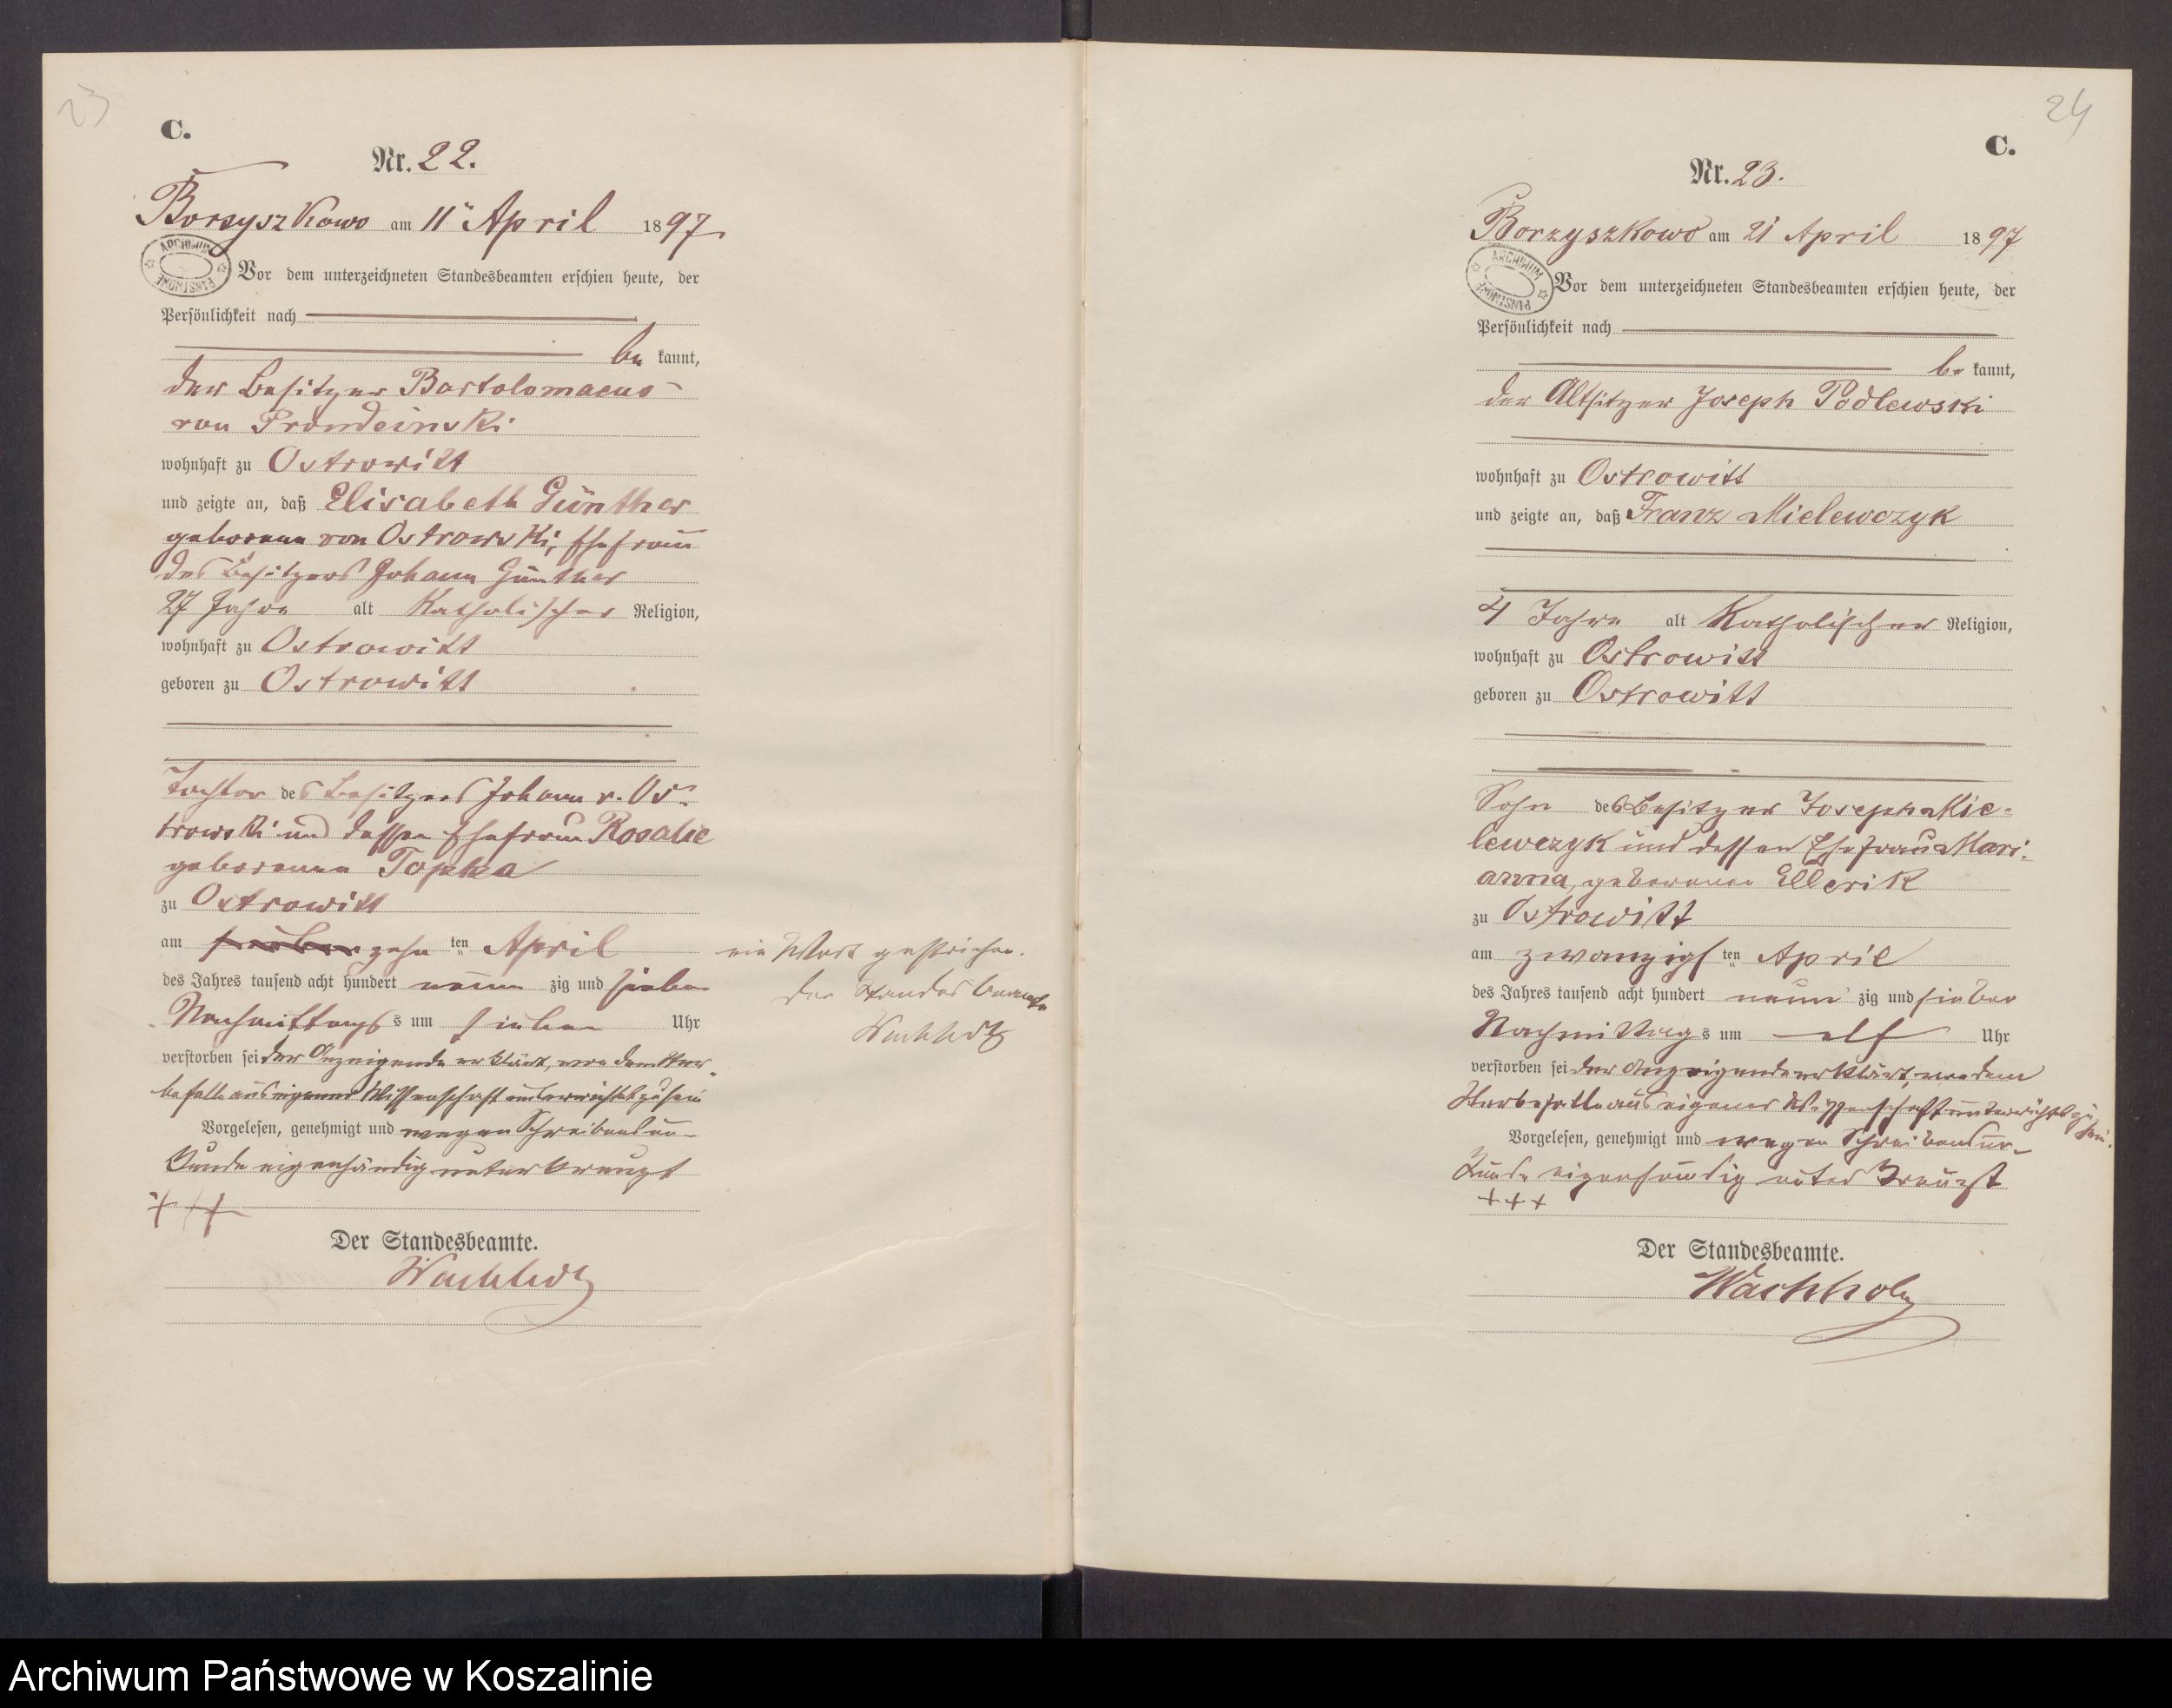 23
C.
Nr. 22.
Borzyszkowo am 11ten April 1897
ARCHIWUM PAŃSTWOWE
Vor dem unterzeichneten Standesbeamten erschien heute, der
Persönlichkeit nach
be kannt,
der Besitzer Bartolomaeus
von
wohnhaft zu Ostrowitt
und zeigte an, daß Elisabeth Günther
geborene von Ostrowski, Ehefrau
des Besitzers Johann Günther
27 Jahre alt Katholischer Religion,
wohnhaft zu Ostrowitt
geboren zu Ostrowitt
Tochter des Besitzers Johann v. Os-
trowski und dessen Ehefrau Rosalie
geborenen Topka
zu Ostrowitt
am zehn ten April
des Jahres tausend acht hundert neun zig und sieben
Nachmittags s um sieben Uhr
verstorben sei der Anzeigende erklärt, von dem Ster-
befalle aus eigener Wissenschaft unterrichtet zu sein
Vorgelesen, genehmigt und wegen Schreibensun-
kunde eigenhändig unterkreuzt
+++
Der Standesbeamte.
Wachholz
ein Wort gestrichen.
Der Standesbeamte
Wachholz
24
C.
Nr. 23.
Borzyszkowo am 21 April 1897
ARCHIWUM PAŃSTWOWE
Vor dem unterzeichneten Standesbeamten erschien heute, der
Persönlichkeit nach
be kannt,
der Altsitzer Joseph Podlewski
wohnhaft zu Ostrowitt
und zeigte an, daß Franz Mielewczyk
4 Jahre alt Katholischer Religion,
wohnhaft zu Ostrowitt
geboren zu Ostrowitt
Sohn des Besitzer Joseph Mie-
lewczyk und dessen Ehefrau Mari-
anna, geborenen Ellerik
zu Ostrowitt
am zwanzigs ten April
des Jahres tausend acht hundert neun zig und sieben
Nachmittags s um elf Uhr
verstorben sei der Anzeigende erklärt, von dem
Sterbefalle aus eigener Wissenschaft unterrichtet zu sein.
Vorgelesen, genehmigt und wegen Schreibensun-
kunde eigenhändig unterkreuzt
+++
Der Standesbeamte.
Wachholz
Archiwum Państwowe w Koszalinie